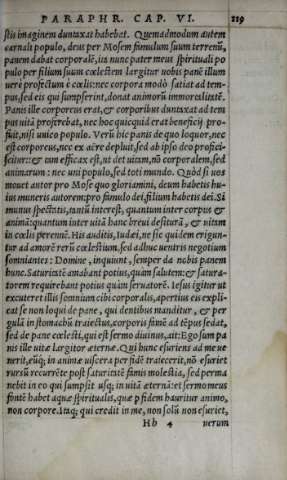 PARAPHR. CAP. VI. 119
stis imaginem duntaxat habebat. Quemadmodum autem
carnali populo, deus per Mosem famulum suum terrenū,
panem dabat corporalē, ita nunc pater meus spirituali po
pulo per filium suum cœlestem largitur uobis panē illum
uere profectum è cœlis: nec corpora modò satiat ad tem-
pus, sed eis qui sumpserint, donat animorū immortalitatē.
Panis ille corporeus erat, & corporibus duntaxat ad tem
pus uitā prorogabat, nec hoc quicquid erat beneficij pro-
fuit, nisi unico populo. Verū hic panis de quo loquor, nec
est corporeus, nec ex aëre depluit, sed ab ipso deo profici-
scitur: & tam efficax est, ut det uitam, nō corporalem, sed
animarum: nec uni populo, sed toti mundo. Quòd si uos
mouet autor pro Mose quo gloriamini, deum habetis hu-
ius muneris autorem: pro famulo dei, filium habetis dei. Si
munus spectatis, tantū interest, quantum inter corpus &
animā: quantum inter uitā hanc breui desiturā, & uitam
in cœlis perennē. His auditis, Iudæi, ne sic quidem erigun-
tur ad amorē rerū cœlestium, sed adhuc uentris negotium
somniantes: Domine, inquiunt, semper da nobis panem
hunc. Saturitatē amabant potius, quàm salutem: & satura-
torem requirebant potius quàm seruatorē. Iesus igitur ut
excuteret illis somnium cibi corporalis, apertius eis expli-
cat se non loqui de pane, qui dentibus manditur, & per
gulā in stomachū traiectus, corporis famē ad tēpus sedat,
sed de pane cœlesti, qui est sermo diuinus, ait: Ego sum pa
nis ille uitæ largitor æternæ. Qui hunc esuriens ad me ue
nerit, eūq; in animæ uiscera per fidē traiecerit, nō esuriet
rursū recurrēte post saturitatē famis molestia, sed perma
nebit in eo qui sumpsit usq; in uitā æternā: et sermo meus
fontē habet aquæ spiritualis, quæ p fidem hauritur animo,
non corpore. Itaq; qui credit in me, non solū non esuriet,
Hh 4 uerum